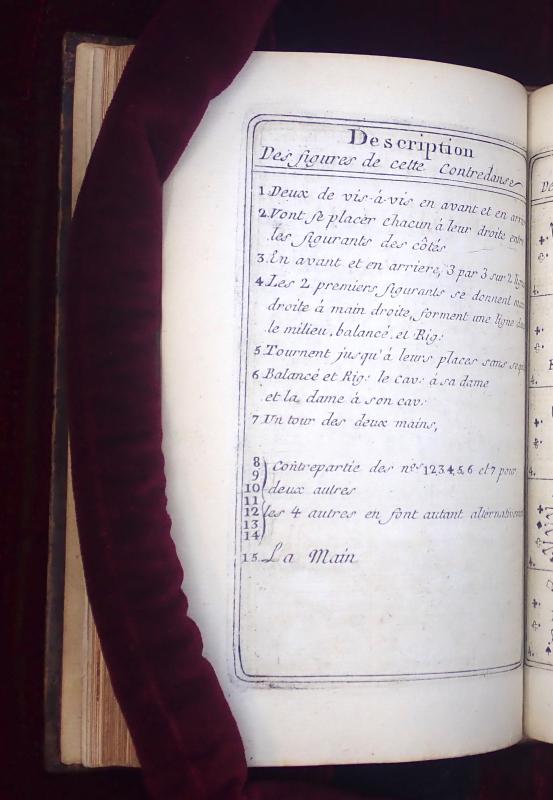 Description
Des figures de cette Contredanse
1. Deux de vis-á-vis en avant et en arri
2. Vont se placer chacun á leur droite entre
les figurants des côtés
3. En avant et en arriere, 3 par 3 sur 2 lign
4. Les 2 premiers figurants se donnent main
droite á main droite, forment une ligne da
le milieu, balancé, et Rig:
5. Tournent jusqu'á leurs places sans se qui
6. Balancé et Rig: le cav: á sa dame
et la dame á son cav:
7. Un tour des deux mains,
8
9 Contrepartie des nos. 1, 2, 3, 4, 5, 6 et 7 pour
10 deux autres
11
12 les 4 autres en font autant alternativem
13
14
15. La Main